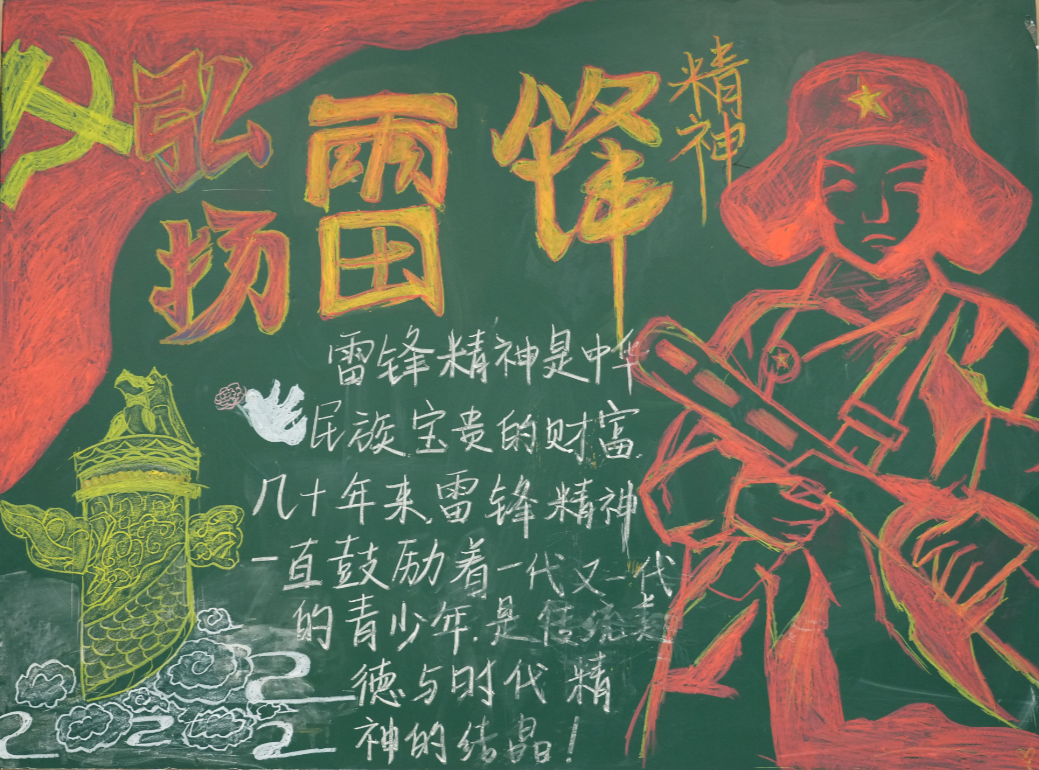 弘扬
雷锋
精神
雷锋精神是中华
民族宝贵的财富.
几十年来,雷锋精神
一直鼓励着一代又一代
的青少年.是传统美
德与时代精
神的结晶!